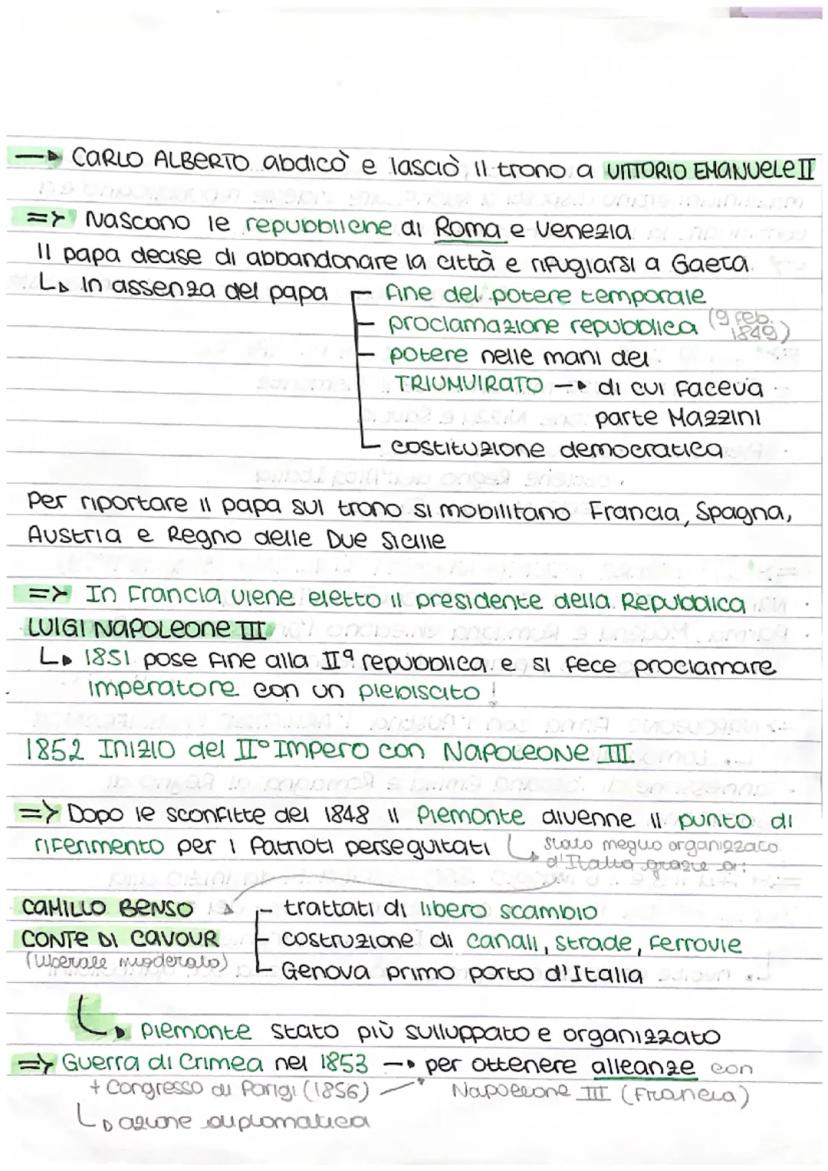 → CARLO ALBERTO abdicò e lasciò il trono a VITTORIO EMANUELE II
=> Nascono le repubbliche di Roma e Venezia
Il papa decise di abbandonare la città e rifugiarsi a Gaeta
↳ In assenza del papa - fine del potere temporale
- proclamazione repubblica (9 feb. 1849)
- potere nelle mani del
TRIUMVIRATO → di cui faceva
parte Mazzini
- costituzione democratica
Per riportare il papa sul trono si mobilitano Francia, Spagna,
Austria e Regno delle Due Sicilie
=> In Francia viene eletto il presidente della Repubblica
LUIGI NAPOLEONE III
↳ 1851 pose fine alla IIª repubblica e si fece proclamare
imperatore con un plebiscito!
1852 INIZIO del II° Impero con NAPOLEONE III
=> Dopo le sconfitte del 1848 il Piemonte divenne il punto di
riferimento per i Patrioti perseguitati ↳ stato meglio organizzato
d'Italia grazie a:
CAMILLO BENSO - trattati di libero scambio
CONTE DI CAVOUR - costruzione di canali, strade, ferrovie
(liberale moderato) - Genova primo porto d'Italia
↳ Piemonte stato più sviluppato e organizzato
=> Guerra di Crimea nel 1853 → per ottenere alleanze con
+ Congresso di Parigi (1856) Napoleone III (Francia)
↳ azione diplomatica